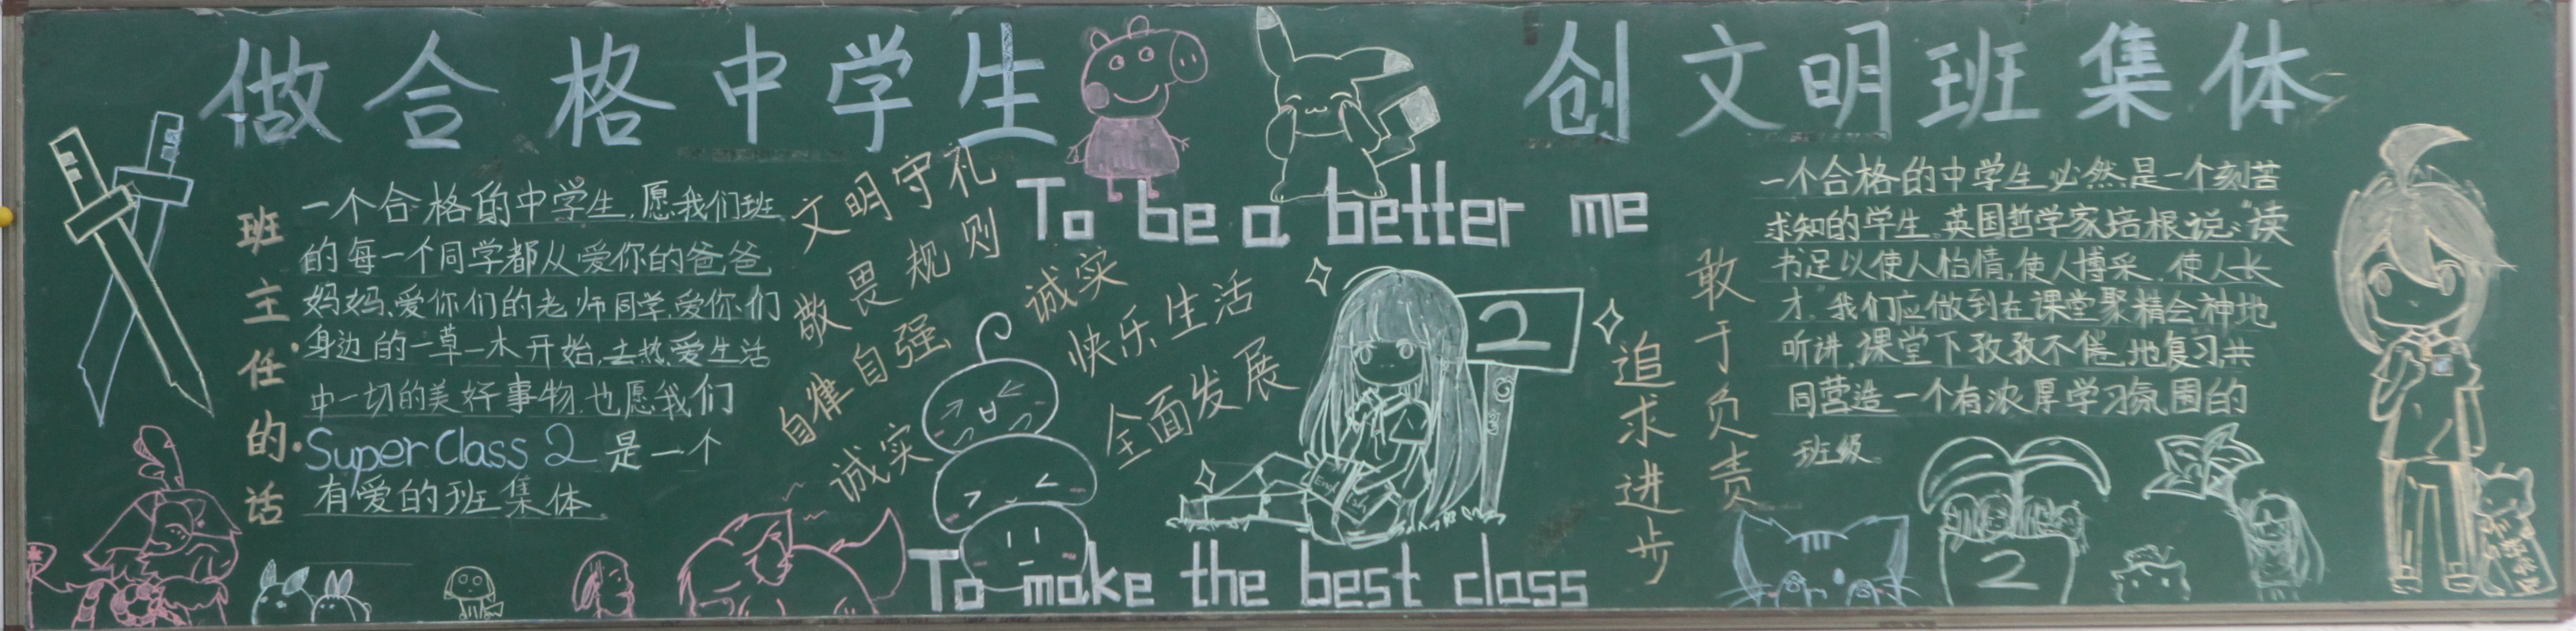 做合格中学生
创文明班集体
班主任的话
一个合格的中学生,愿我们班
的每一个同学都从爱你的爸爸
妈妈,爱你们的老师同学,爱你们
身边的一草一木开始,去热爱生活
中一切的美好事物.也愿我们
Super Class 2 是一个
有爱的班集体
文明守礼
敬畏规则
自律自强
诚实
诚实
快乐生活
全面发展
To be a better me
2
English
To make the best class
追求进步
敢于负责
一个合格的中学生必然是一个刻苦
求知的学生。英国哲学家培根说:“读
书足以使人怡情,使人博采,使人长
才.”我们应做到在课堂聚精会神地
听讲,课堂下孜孜不倦地复习,共
同营造一个有浓厚学习氛围的
班级。
2